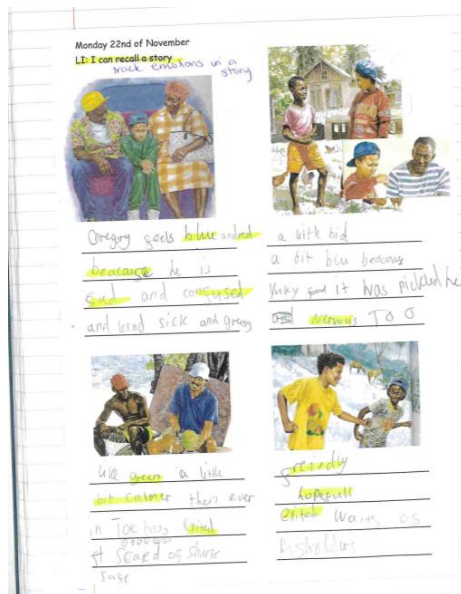 Monday 22nd of November
LI: I can recall a story
track emotions in a
story
Gregory feels blue and red
beacause he is
sad and confused
and kind sick and greasy
a little bid
a bit blu because
yuky it was pickeld he
nervous TOO
like green a little
bit calmer then ever
in exited
scared of
freindly
hopefull
exited wants os